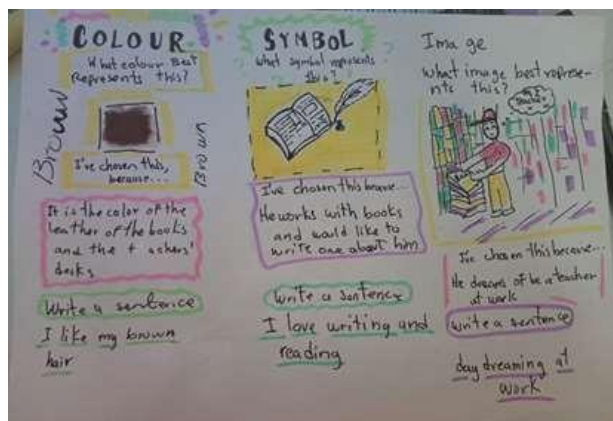 COLOUR
What colour best
represents this?
Brown
Brown
I've chosen this,
because...
It is the color of the
leather of the books
and the t achers'
desks
Write a sentence
I like my brown
hair
SYMBOL
what symbol represents
this?
I've chosen this because...
He works with books
and would like to
write one about him
Write a sentence
I love writing and
reading
Image
What image best represe-
nts this?
I've chosen this because...
He dreams of be a teacher
at work
Write a sentence
day dreaming at
work